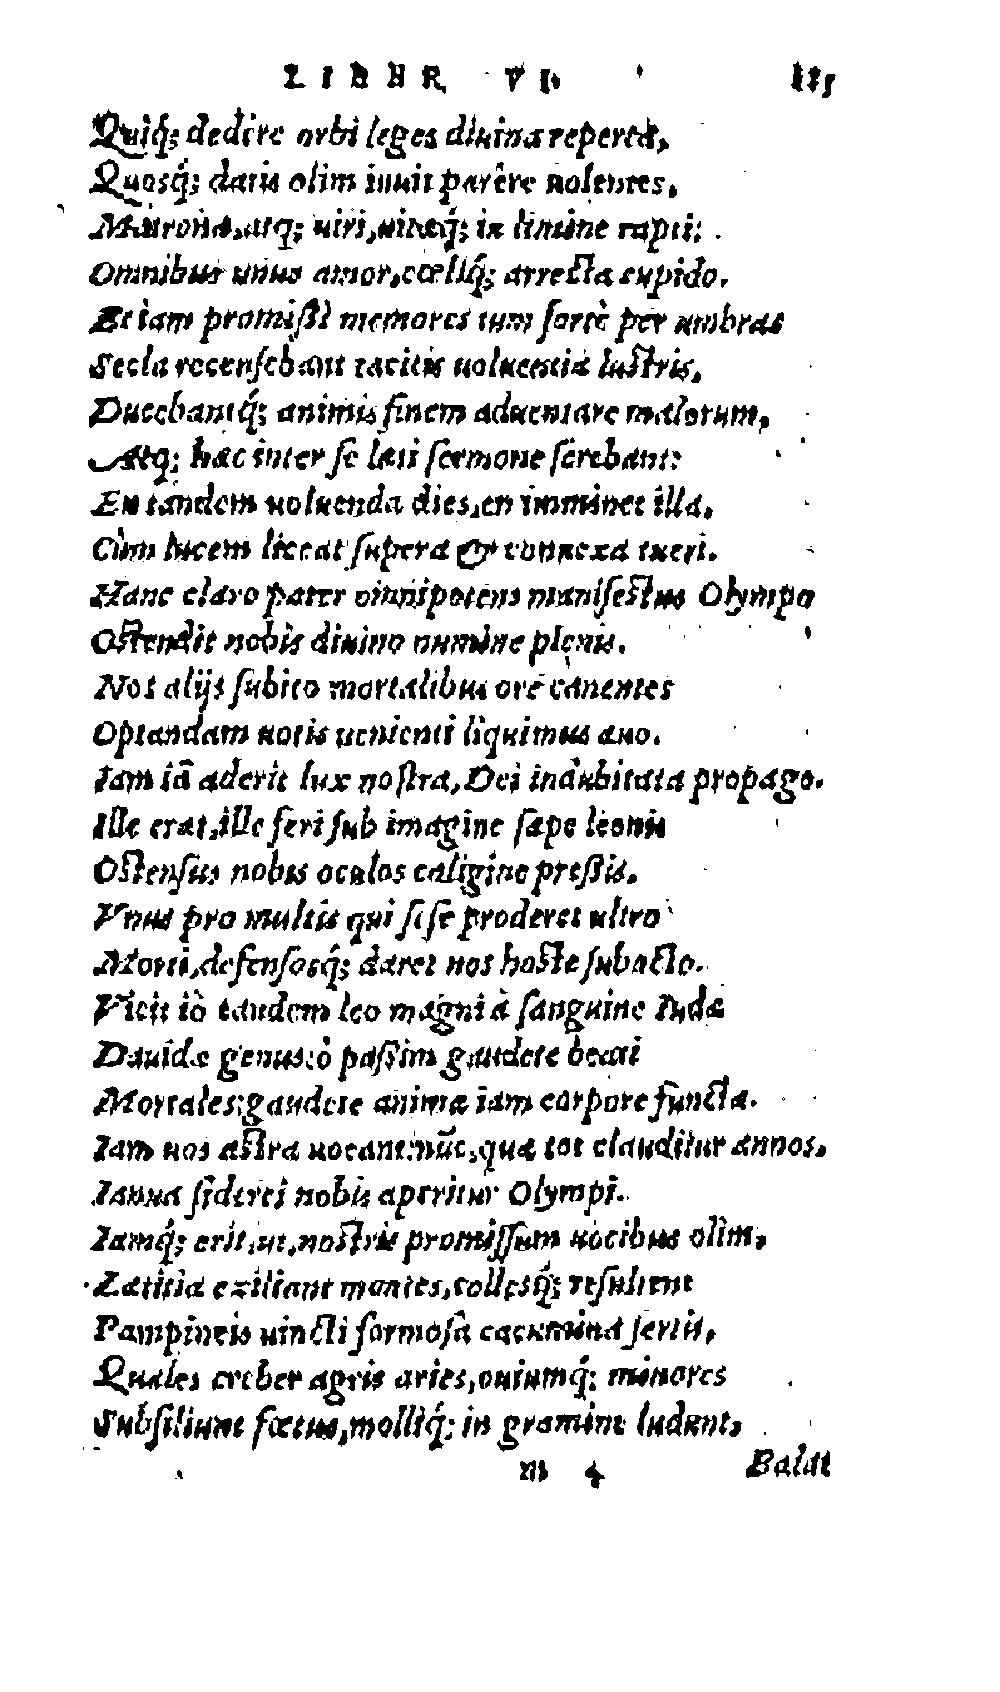 LIBER VI. 185
Quiq́; dedêre orbi leges diuina reperta,
Quosq́; datis olim iuuit parêre uolentes,
Matronæ, atq; uiri, uitæq́; in limine rapti:
Omnibus unus amor, cœliq́; arrecta cupido.
Et iam promissi memores tum fortè per umbras
Secla recensebant tacitis uoluentia lustris,
Ducebantq́; animis finem aduentare malorum,
Atq; hæc inter se læti sermone serebant:
En tandem uoluenda dies, en imminet illa,
Cùm lucem liceat supera & connexa tueri.
Hanc claro pater omnipotens manifestus Olympo
Ostendit nobis diuino numine plenis.
Nos alijs subito mortalibus ore canentes
Optandam uotis uenienti liquimus æuo.
Iam iã aderit lux nostra, Dei indubitata propago.
Ille erat, ille feri sub imagine sæpe leonis
Ostensus nobis oculos caligine pressis,
Vnus pro multis qui sese proderet ultro
Morti, defensosq́; daret nos hoste subacto.
Vicit iò tandem leo magni à sanguine Iudæ
Dauidæ genus: ò passim gaudete beati
Mortales: gaudete animæ iam corpore functæ.
Iam nos astra uocant: nũc, quæ tot clauditur annos,
Ianua siderei nobis aperitur Olympi.
Iamq́; erit, ut, nostris promissum uocibus olim,
Lætitia exiliant montes, collesq́; resultent
Pampineis uincti formosa cacumina sertis,
Quales creber agris aries, ouiumq́; minores
Subsiliunt fœtus, molliq́; in gramine ludunt,
m 4 Balat